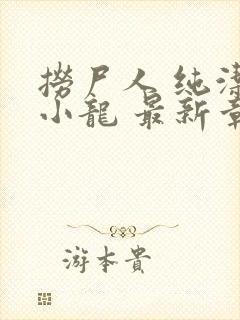 撈尸人 纯洁
小龍 最新章
游本貴